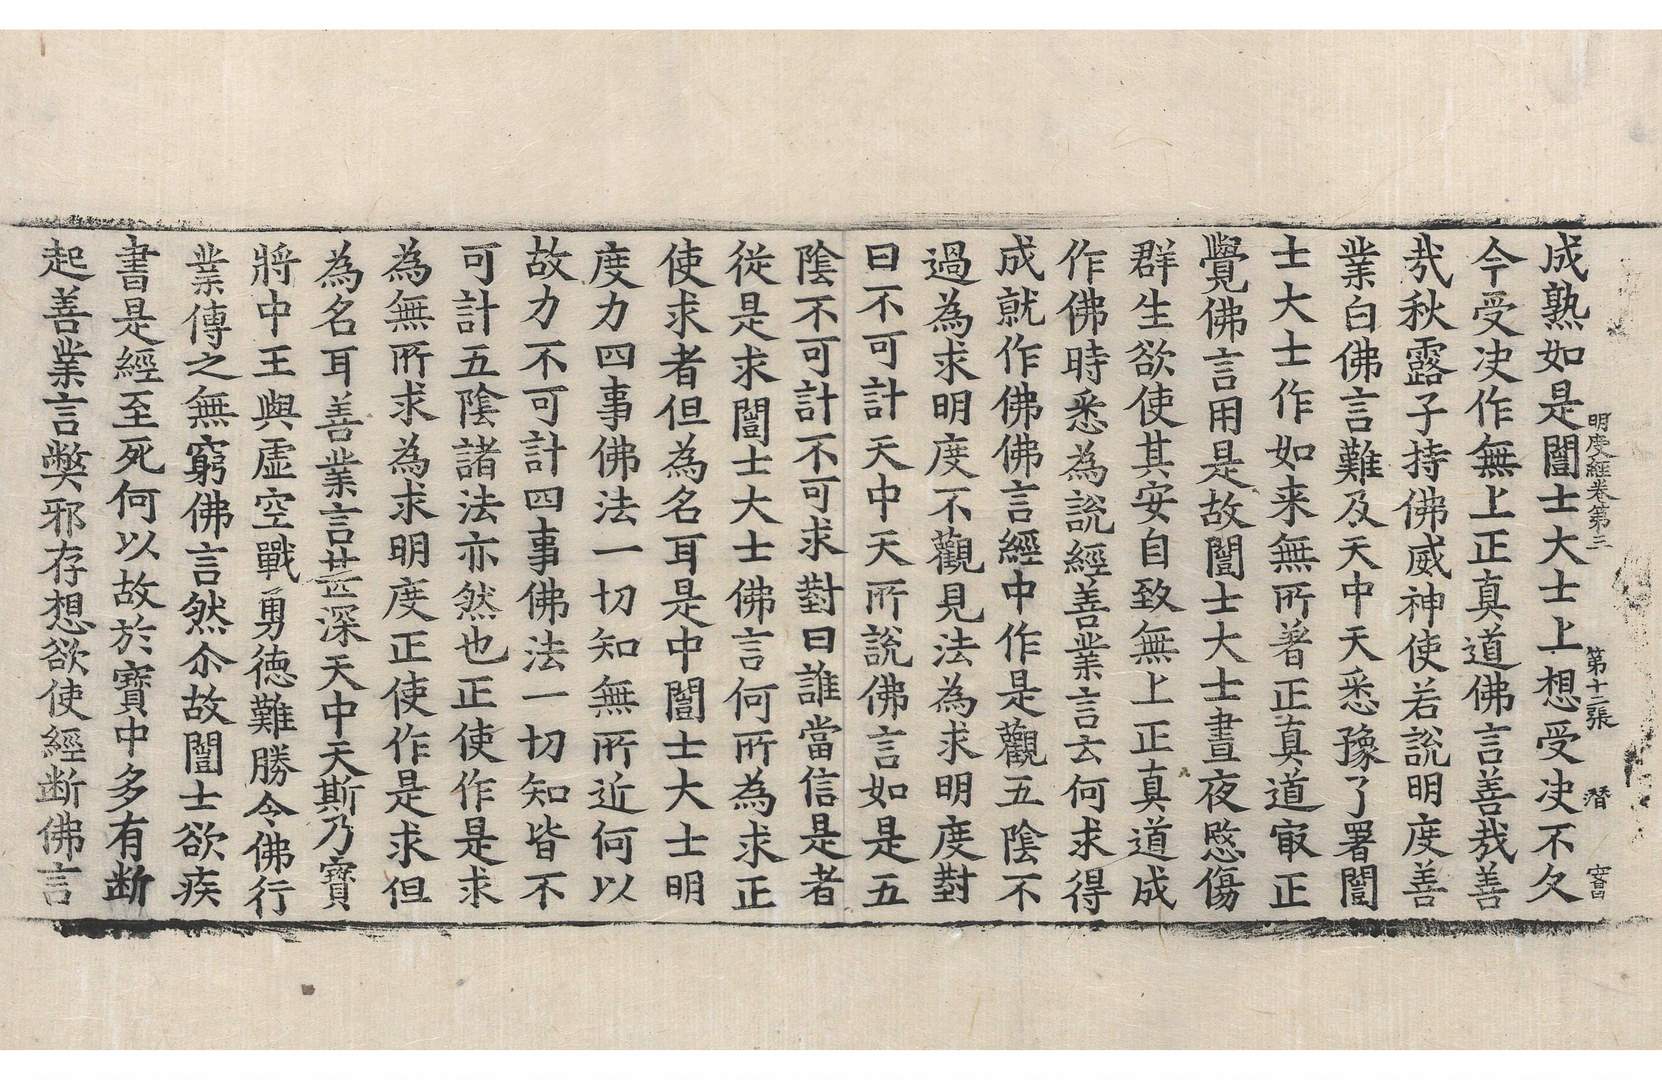 明度經卷第三 第十二張 潛 㝛
成熟如是闓士大士上想受决不久
今受决作無上正真道佛言善㢤善
㢤秋露子持佛威神使若說明度善
業白佛言難及天中天悉豫了署闓
士大士作如来無所著正真道㝡正
覺佛言用是故闓士大士晝夜愍傷
群生欲使其安自致無上正真道成
作佛時悉為說經善業言云何求得
成就作佛佛言經中作是觀五陰不
過為求明度不觀見法為求明度對
曰不可計天中天所說佛言如是五
陰不可計不可求對曰誰當信是者
從是求闓士大士佛言何所為求正
使求者但為名耳是中闓士大士明
度力四事佛法一切知無所近何以
故力不可計四事佛法一切知皆不
可計五陰諸法亦然也正使作是求
為無所求為求明度正使作是求但
為名耳善業言甚深天中天斯乃寶
將中王與虛空戰勇徳難勝令佛行
業傳之無窮佛言然尒故闓士欲疾
書是經至死何以故於寶中多有断
起善業言弊邪存想欲使經断佛言